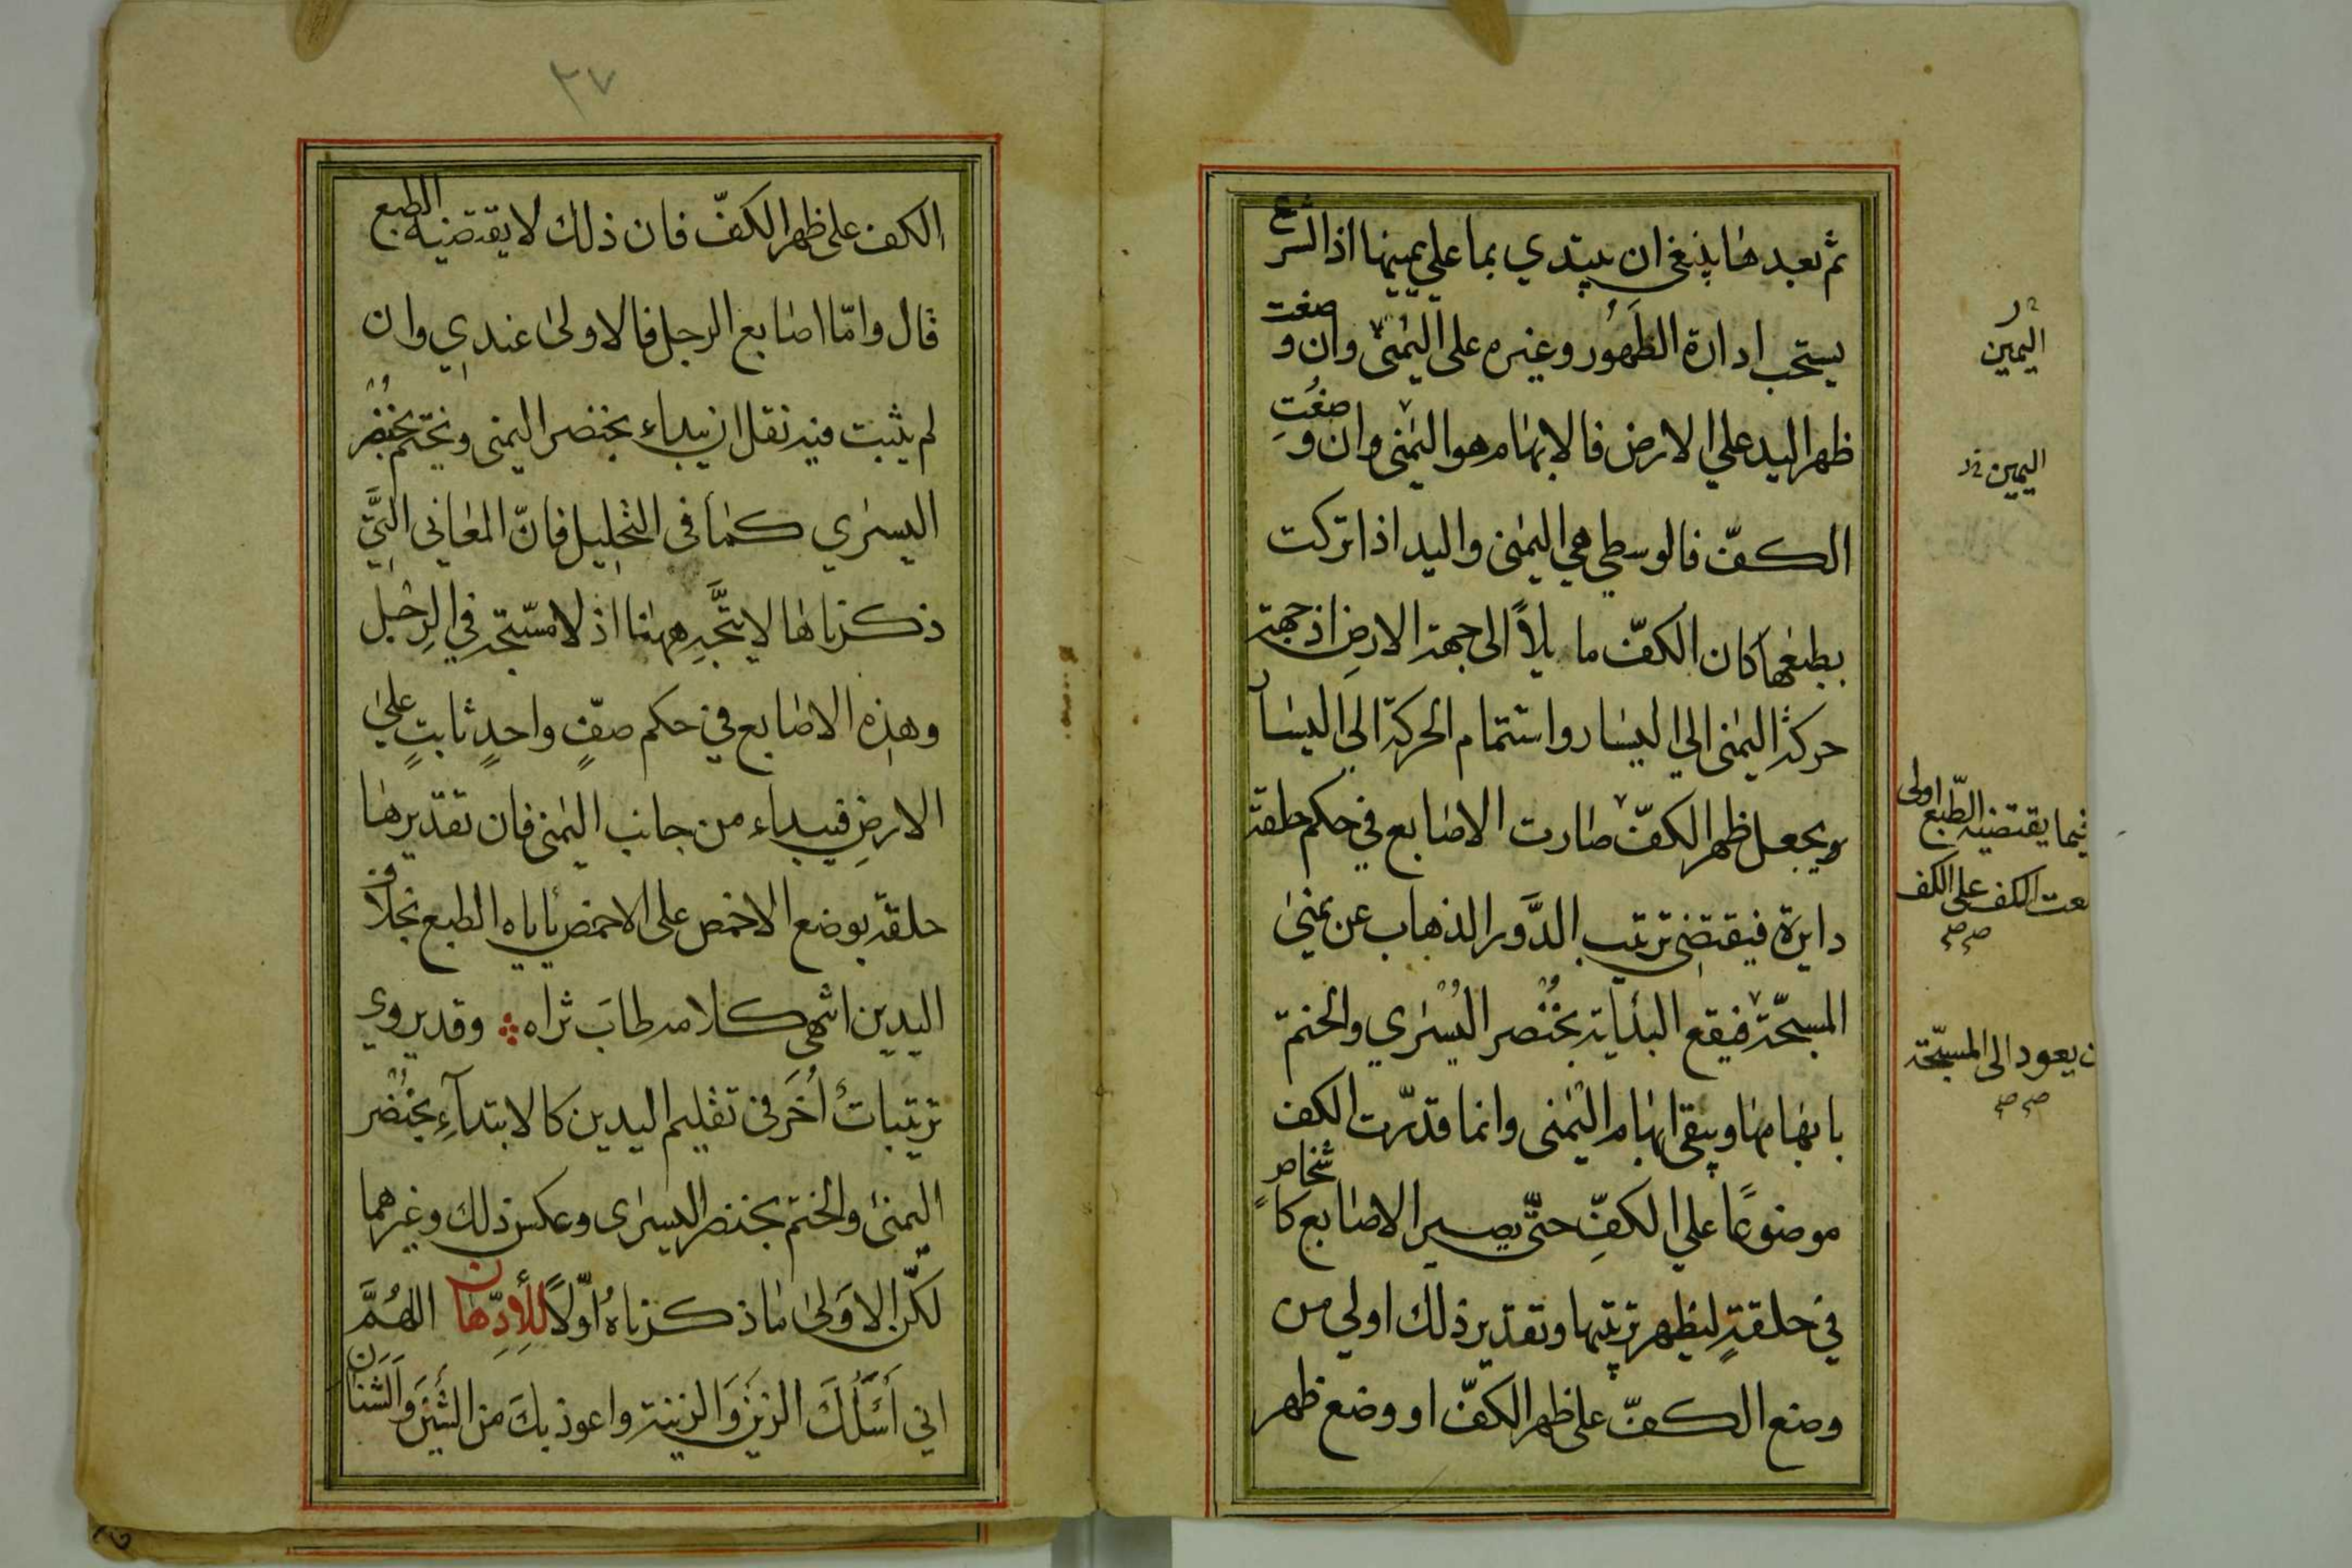 ثم بعدها ينبغي ان يبتدي بما علي يمينها اذ الشرع
يستحب ادارة الطهور وغيره على اليمنى وان وضعت
ظهر اليد علي الارض فالابهام هو اليمنى وان وضعت
الكف فالوسطي هي اليمنى واليد اذا تركت
بطبعها كان الكف مايلاً الى جهة الارض اذ جهة
حركة اليمنى الي اليسار واستتمام الحركة الي اليسار
ويجعل ظهر الكف صارت الاصابع في حكم حلقة
دايرة فيقتضي ترتيب الدور الذهاب عن يمنى
المسبحة فيقع البداية بخنصر اليسري والختمة
بابهامها ويبقى ابهام اليمنى وانما قدرت الكف
موضوعاً علي الكف حتى يصير الاصابع كاشخاص
في حلقة ليظهر ترتيبها وتقدير ذلك اولي من
وضع الكف على ظهر الكف او وضع ظهر
اليمين
اليمين
فيما يقتضيه الطبع اولى
الكف على الكف
يعود الى المسبحة
صح صح
٣٧
الكف على ظهر الكف فان ذلك لا يقتضيه الطبع
قال واما اصابع الرجل فالاولى عندي وان
لم يثبت فيه نقل ان يبداء بخنصر اليمنى ويختم بخنصر
اليسري كما في التخليل فان المعاني التي
ذكرناها لا يتجه ههنا اذ لا مسبحة في الرجل
وهذه الاصابع في حكم صف واحد ثابت علي
الارض فيبداء من جانب اليمنى فان تقديرها
حلقة بوضع الاخمص على الاخمص يأباه الطبع بخلاف
اليدين انتهى كلامه طاب ثراه وقد يروي
ترتيبات أُخَر في تقليم اليدين كالابتدآء بخنصر
اليمنى والختم بخنصر اليسرى وعكس ذلك وغيرهما
لكن الاولى ما ذكرناه اولاً للادهان اللهم
اني أسئلك الزين والزينة واعوذ بك من الشين والشنان